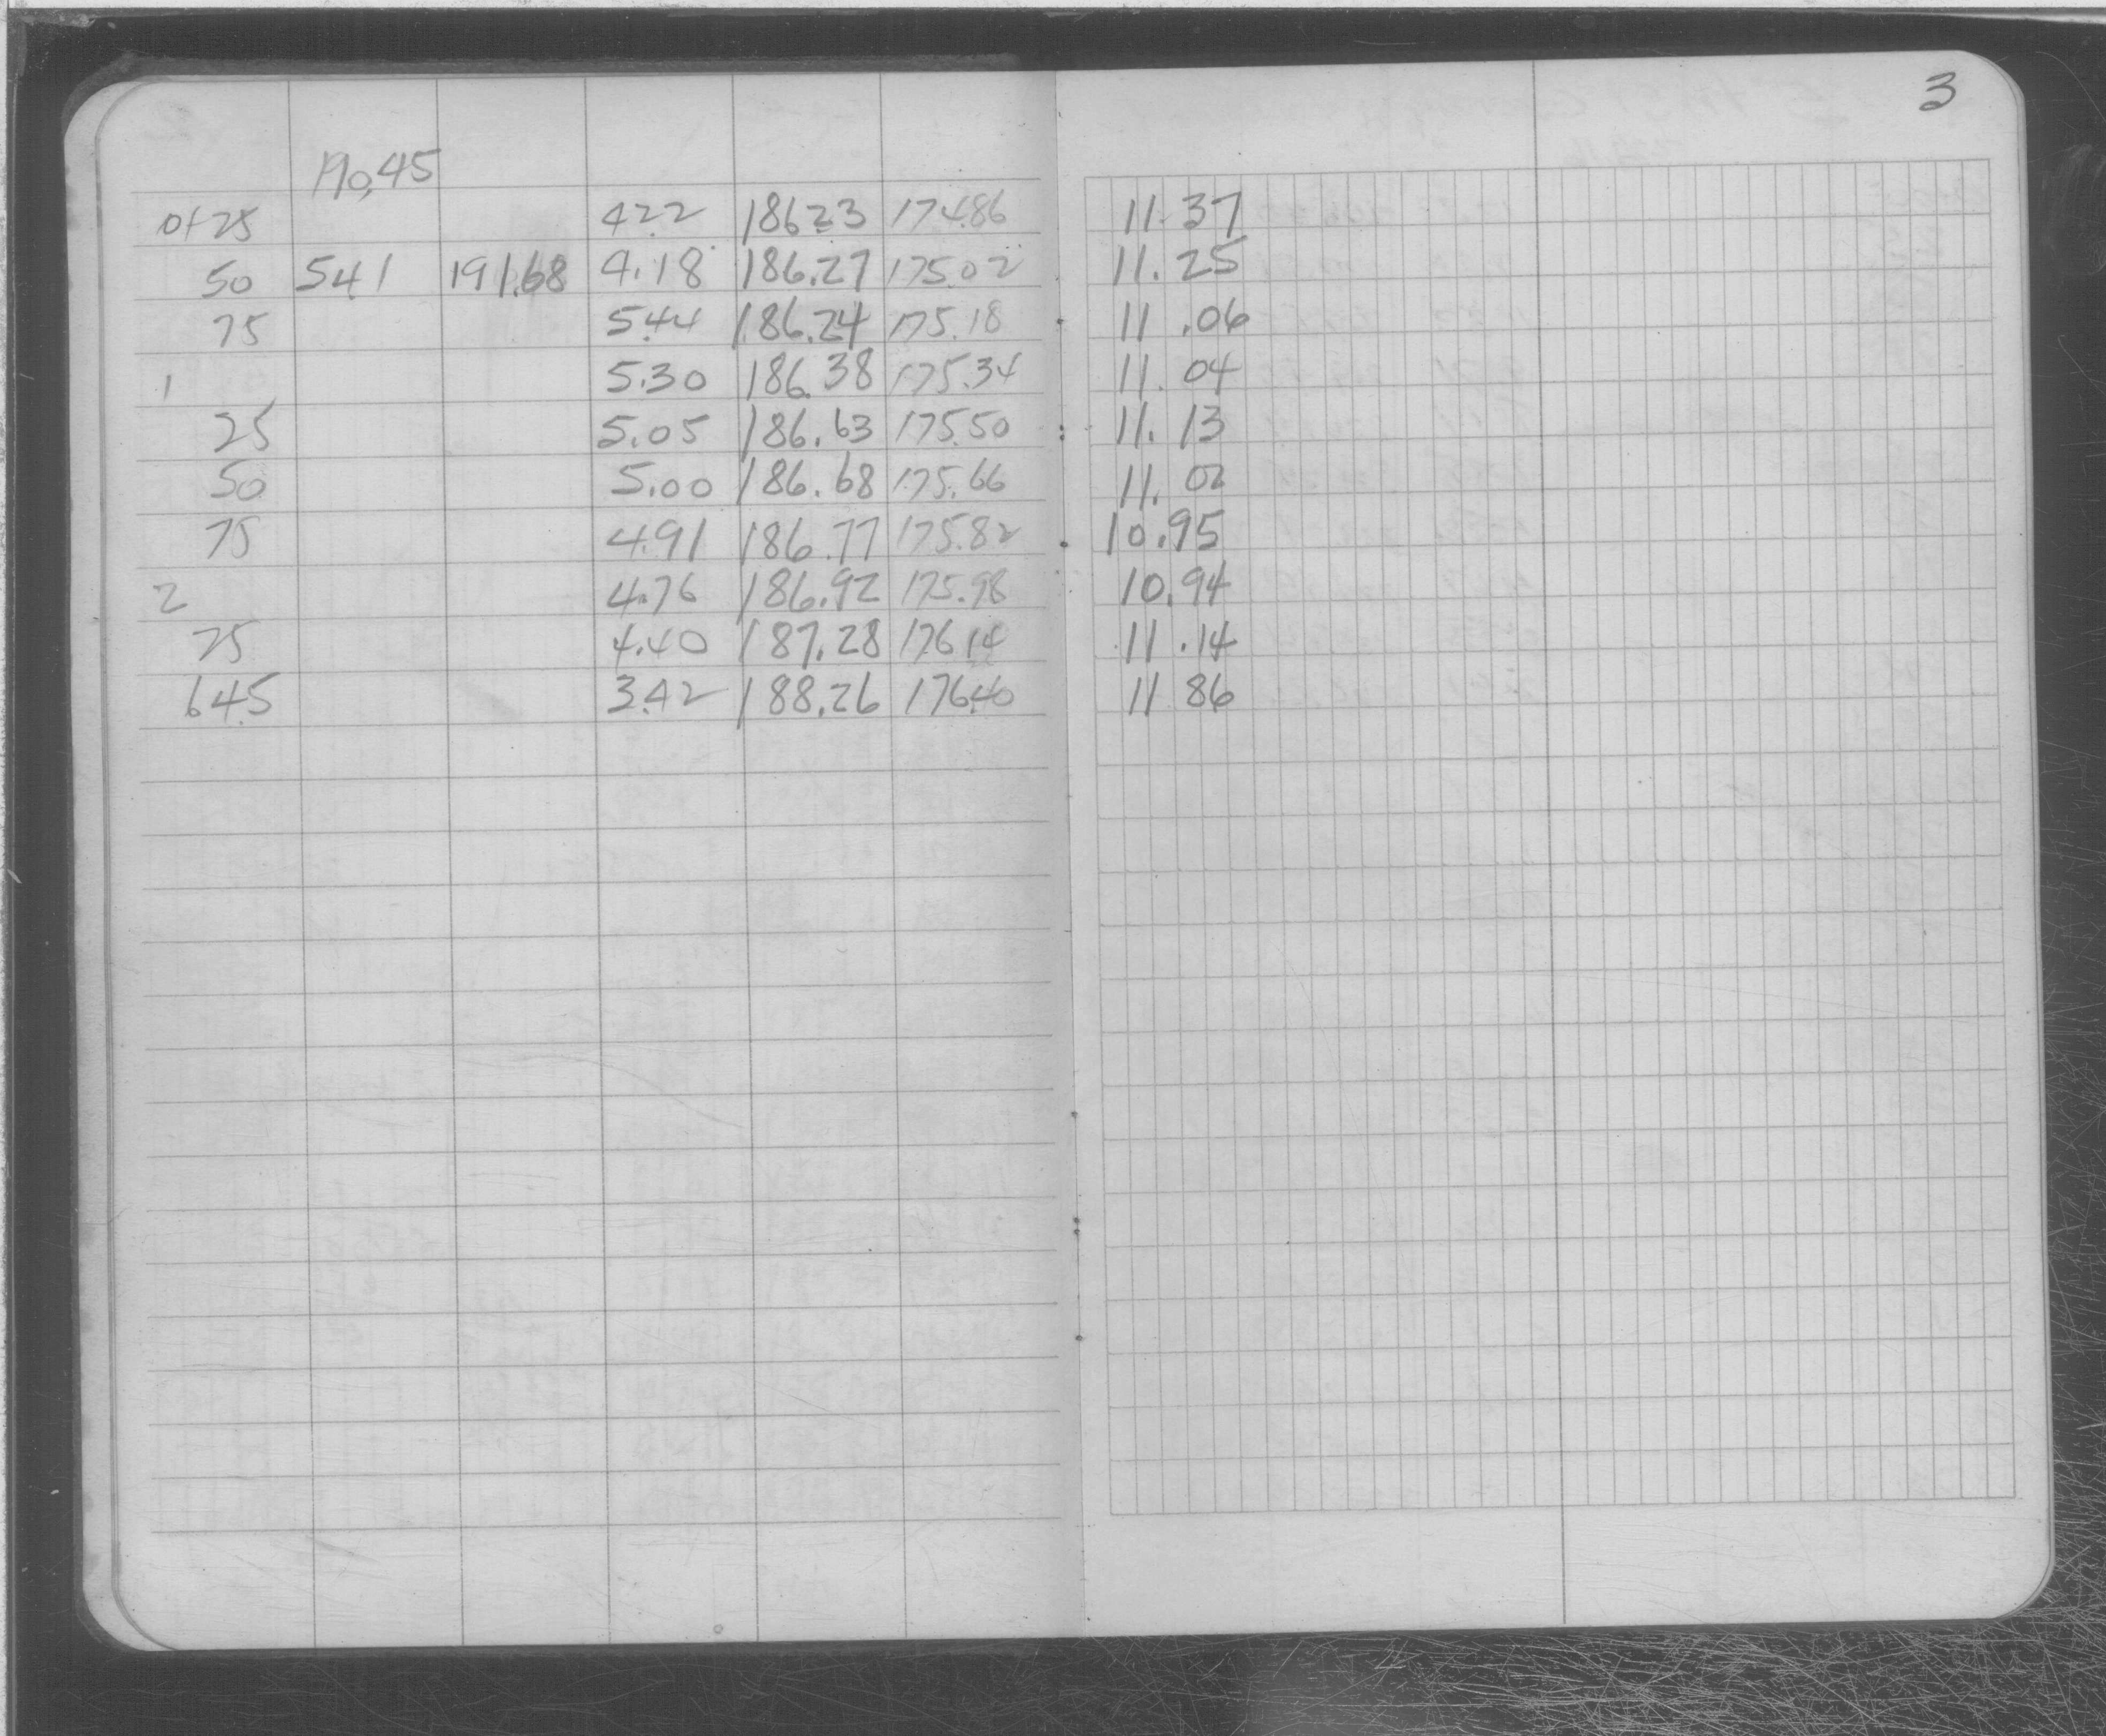 3
190.45
0+25 4.22 186.23 174.86 11.37
50 5.41 191.68 4.18 186.27 175.02 11.25
75 5.44 186.24 175.18 11.06
1 5.30 186.38 175.34 11.04
25 5.05 186.63 175.50 11.13
50 5.00 186.68 175.66 11.02
75 4.91 186.77 175.82 10.95
2 4.76 186.92 175.98 10.94
25 4.40 187.28 176.14 11.14
64.5 3.42 188.26 176.40 11 86